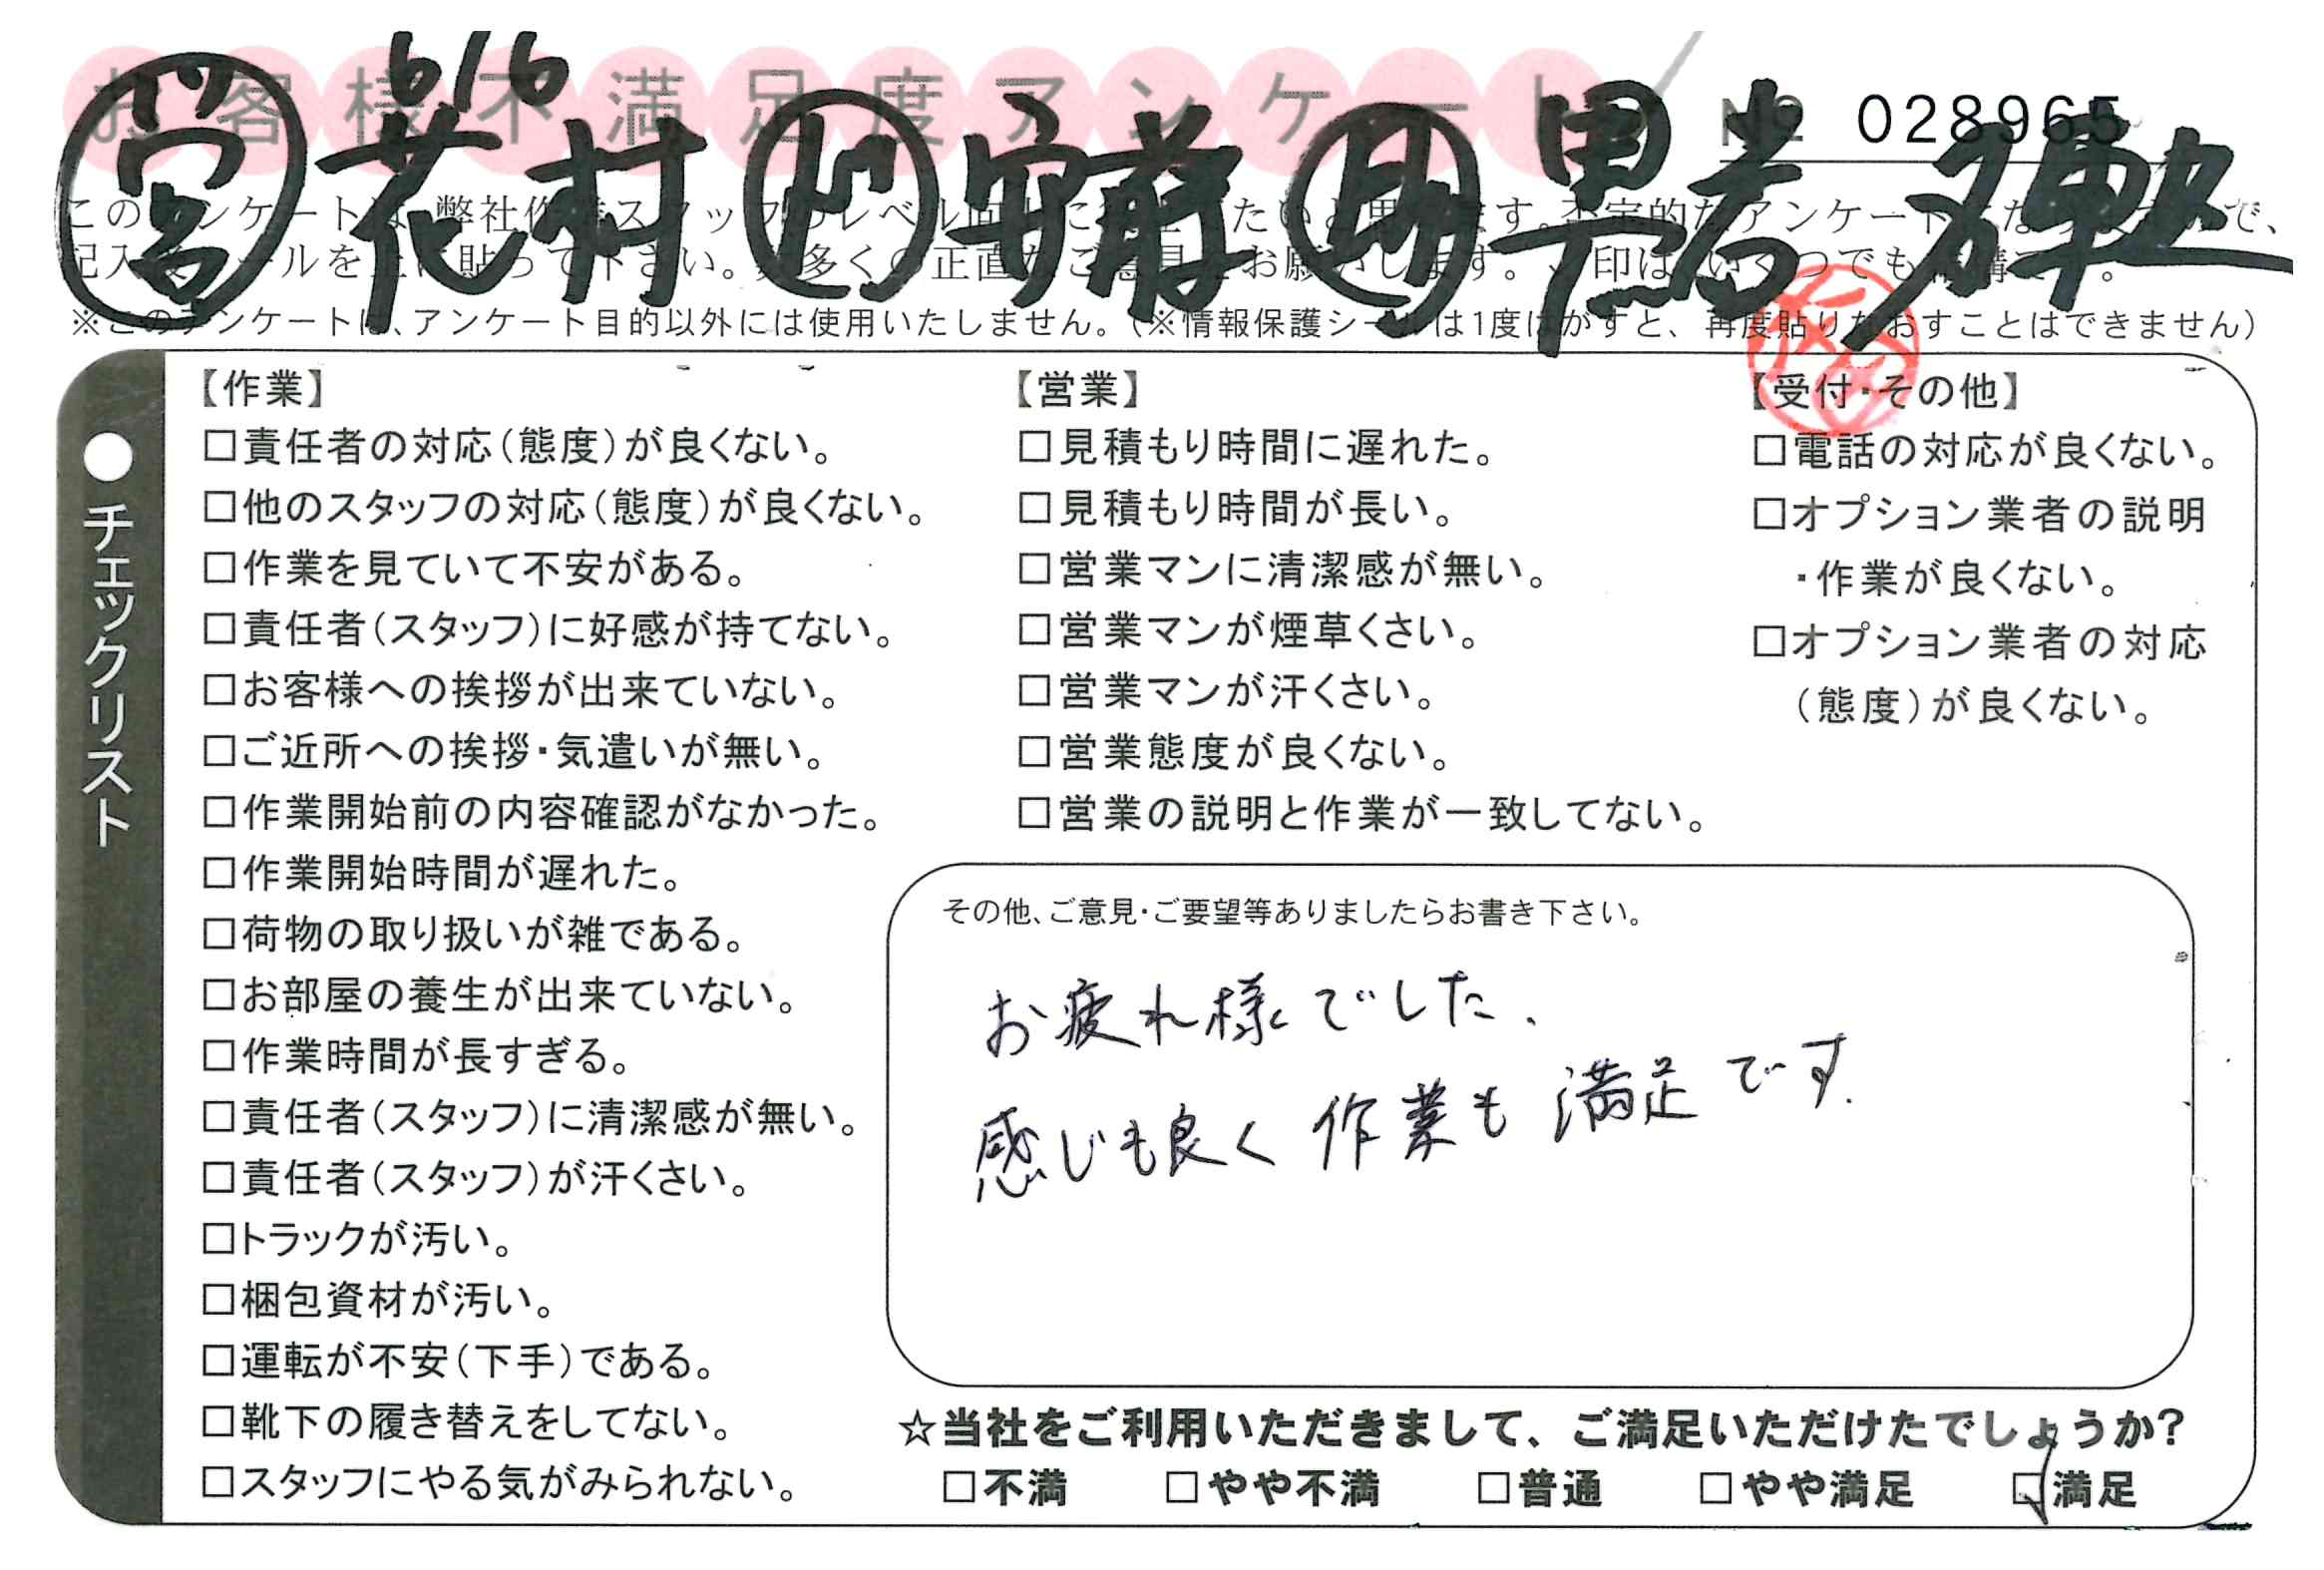 お客様不満足度アンケート
6/6
№ 028965
営 花村 安藤 助
※このアンケートは、アンケート目的以外には使用いたしません。(※情報保護シールは1度はがすと、再度貼りなおすことはできません)
●チェックリスト
【作業】
□責任者の対応(態度)が良くない。
□他のスタッフの対応(態度)が良くない。
□作業を見ていて不安がある。
□責任者(スタッフ)に好感が持てない。
□お客様への挨拶が出来ていない。
□ご近所への挨拶・気遣いが無い。
□作業開始前の内容確認がなかった。
□作業開始時間が遅れた。
□荷物の取り扱いが雑である。
□お部屋の養生が出来ていない。
□作業時間が長すぎる。
□責任者(スタッフ)に清潔感が無い。
□責任者(スタッフ)が汗くさい。
□トラックが汚い。
□梱包資材が汚い。
□運転が不安(下手)である。
□靴下の履き替えをしてない。
□スタッフにやる気がみられない。
【営業】
□見積もり時間に遅れた。
□見積もり時間が長い。
□営業マンに清潔感が無い。
□営業マンが煙草くさい。
□営業マンが汗くさい。
□営業態度が良くない。
□営業の説明と作業が一致してない。
【受付・その他】
□電話の対応が良くない。
□オプション業者の説明
・作業が良くない。
□オプション業者の対応
(態度)が良くない。
その他、ご意見・ご要望等ありましたらお書き下さい。
お疲れ様でした、
感じも良く 作業も 満足です.
☆当社をご利用いただきまして、ご満足いただけたでしょうか?
□不満 □やや不満 □普通 □やや満足 ☑満足